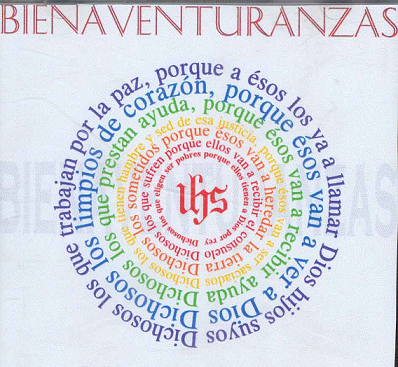 BIENAVENTURANZAS
Dichosos los que trabajan por la paz, porque a ésos los va a llamar Dios hijos suyos
Dichosos los limpios de corazón, porque ésos van a ver a Dios
Dichosos los que prestan ayuda, porque ésos van a recibir ayuda
Dichosos los que tienen hambre y sed de esa justicia, porque ésos van a ser saciados
Dichosos los sometidos porque ésos van a heredar la tierra
Dichosos los que sufren porque ellos van a recibir el consuelo
Dichosos los que eligen ser pobres porque ellos tienen a Dios por rey
ihs